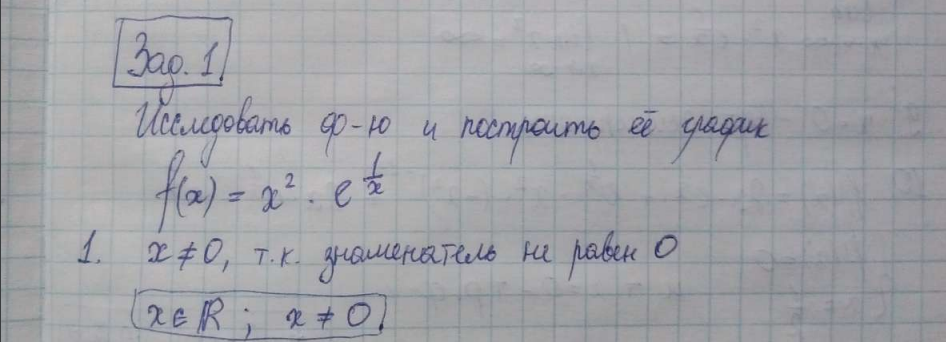 Зад. 1.
Исследовать ф-ю и построить её график
f(x) = x² · e^(1/x)
1. x ≠ 0, т.к. знаменатель не равен 0
x ∈ ℝ ; x ≠ 0.